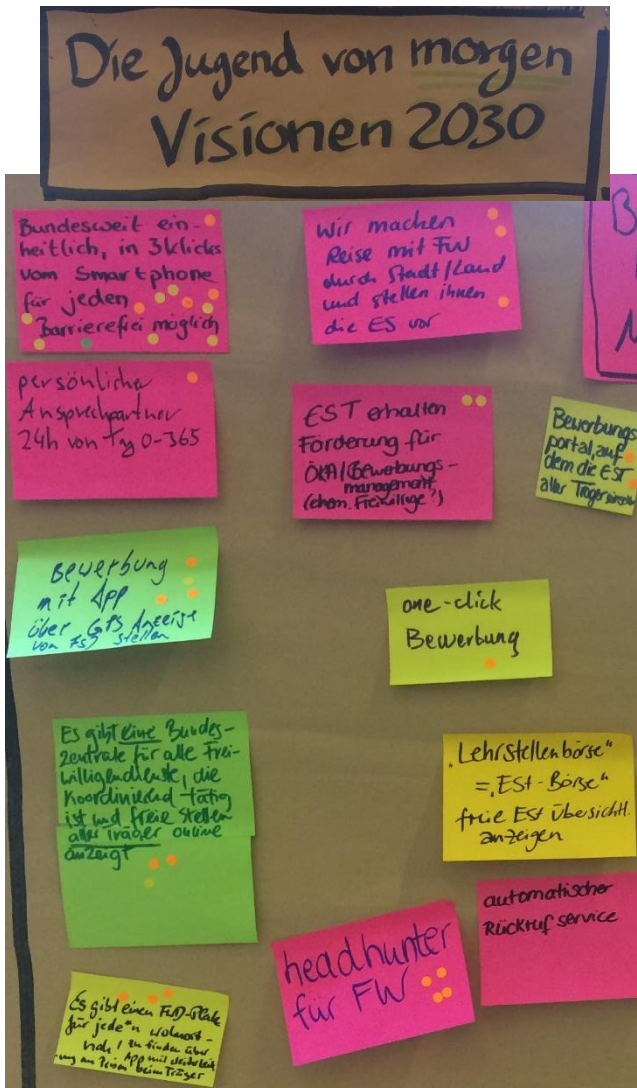 Die Jugend von morgen
Visionen 2030
Bundesweit ein-
heitlich, in 3 klicks
vom Smartphone
für jeden
Barrierefrei möglich
Wir machen
Reise mit FW
durch Stadt/Land
und stellen ihnen
die ES vor
persönlicher
Ansprechpartner
24h von Tag 0-365
EST erhalten
Förderung für
ÖKA/Bewerbungs-
management
(ehem. Freiwillige?)
Bewerbungs
portal, auf
dem die EST
aller Träger
Bewerbung
mit App
über GPS Anzeige
von FSJ Stellen
one-click
Bewerbung
Es gibt eine Bundes-
zentrale für alle Frei-
willigendienste, die
koordinierend tätig
ist und freie Stellen
aller Träger online
anzeigt
"Lehrstellenbörse"
= "ESt-Börse"
freie ESt übersichtl.
anzeigen
automatischer
Rückruf service
headhunter
für FW
Es gibt einen FWD-Platz
für jede*n wohnort-
nah! Zu finden über
App mit
beim Träger